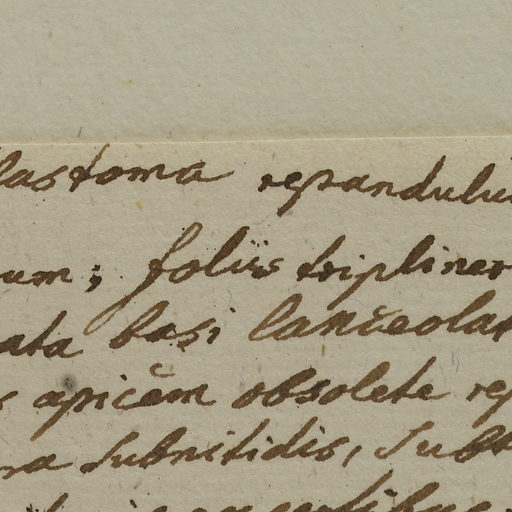 lastoma repandulu
um; foliis tripliner
ata basi lanceolat
s apicem obsolete rep
ra subnitidis, sub